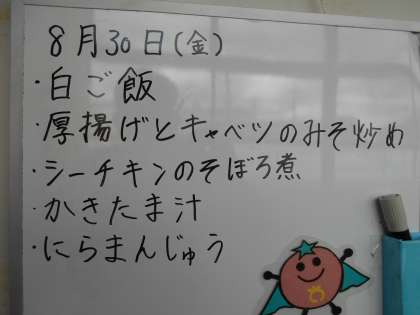 8月30日(金)
・白ご飯
・厚揚げとキャベツのみそ炒め
・シーチキンのそぼろ煮
・かきたま汁
・にらまんじゅう